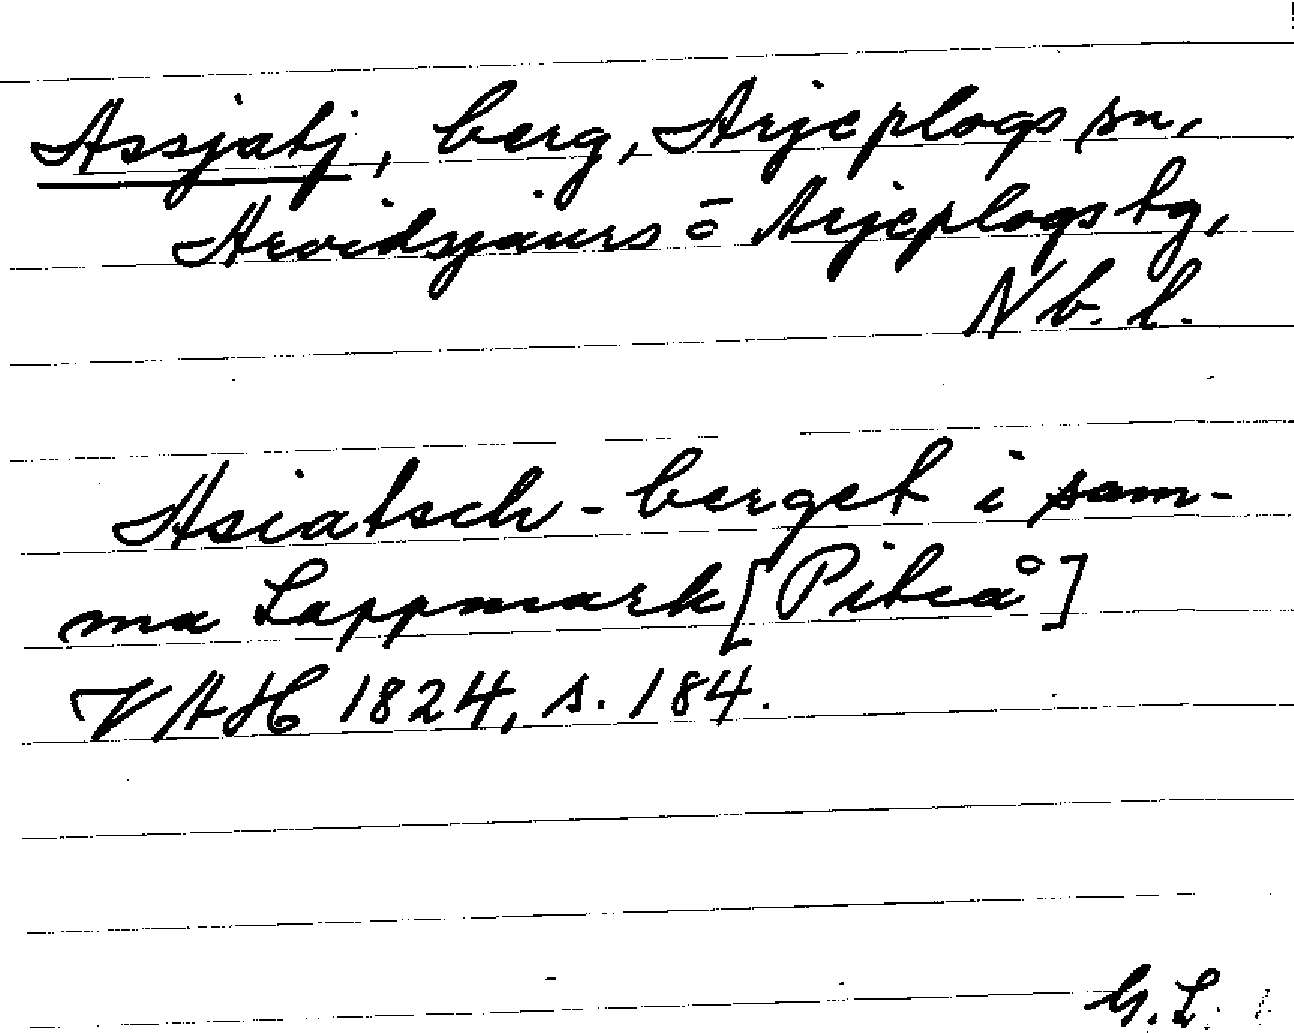 Assjatj, berg, Arjeplogs sn,
Arvidsjaurs o̅ Arjeplogs tg,
Nb. l.
Asiatsch-berget i sam-
ma Lappmark [Piteå]
VAH 1824, s. 184.
G. L.